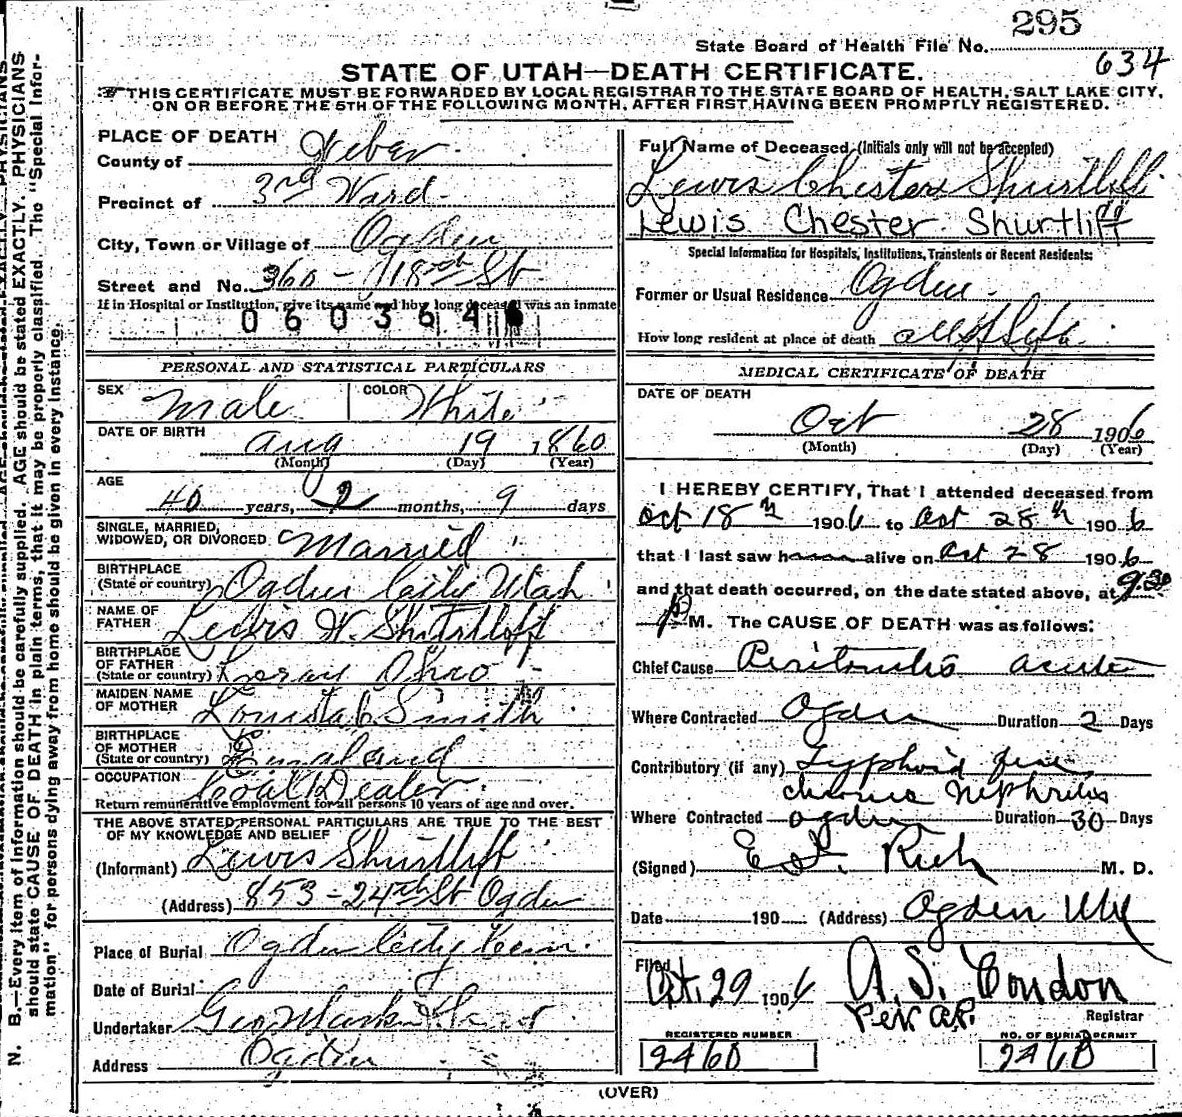 295
State Board of Health File No.
634
STATE OF UTAH—DEATH CERTIFICATE.
THIS CERTIFICATE MUST BE FORWARDED BY LOCAL REGISTRAR TO THE STATE BOARD OF HEALTH, SALT LAKE CITY,
ON OR BEFORE THE 5TH OF THE FOLLOWING MONTH, AFTER FIRST HAVING BEEN PROMPTLY REGISTERED.
N. B.—Every item of information should be carefully supplied. AGE should be stated EXACTLY. PHYSICIANS
should state CAUSE OF DEATH in plain terms, that it may be properly classified. The "Special Infor-
mation" for persons dying away from home should be given in every instance.
PLACE OF DEATH
County of Weber
Precinct of 3rd Ward
City, Town or Village of Ogden
Street and No. 360 - 18th St
If in Hospital or Institution, give its name and how long deceased was an inmate
060364
PERSONAL AND STATISTICAL PARTICULARS
SEX Male COLOR White
DATE OF BIRTH Aug 19 1860
(Month) (Day) (Year)
AGE
40 years, 2 months, 9 days
SINGLE, MARRIED,
WIDOWED, OR DIVORCED Married
BIRTHPLACE
(State or country) Ogden City Utah
NAME OF
FATHER Lewis W. Shurtliff
BIRTHPLACE
OF FATHER
(State or country) Ohio
MAIDEN NAME
OF MOTHER Louisa C Smith
BIRTHPLACE
OF MOTHER
(State or country) England
OCCUPATION Coal Dealer
Return remunerative employment for all persons 10 years of age and over.
THE ABOVE STATED PERSONAL PARTICULARS ARE TRUE TO THE BEST
OF MY KNOWLEDGE AND BELIEF
(Informant) Lewis Shurtliff
(Address) 853 - 24th St Ogden
Place of Burial Ogden City Cem.
Date of Burial
Undertaker Geo
Address Ogden
Full Name of Deceased (Initials only will not be accepted)
Lewis Chester Shurtliff
Lewis Chester Shurtliff
Special Information for Hospitals, Institutions, Transients or Recent Residents:
Former or Usual Residence Ogden
How long resident at place of death all of Life
MEDICAL CERTIFICATE OF DEATH
DATE OF DEATH
Oct 28 1906
(Month) (Day) (Year)
I HEREBY CERTIFY, That I attended deceased from
Oct 18th 1906 to Oct 28th 1906
that I last saw h alive on Oct 28 1906
and that death occurred, on the date stated above, at 9:30
P M. The CAUSE OF DEATH was as follows:
Chief Cause Peritonitis acute
Where Contracted Ogden Duration 2 Days
Contributory (if any) Typhoid fever
chronic Nephritis
Where Contracted Ogden Duration 30 Days
(Signed) E. I. Rich M. D.
Date 190 (Address) Ogden Utah
Filed Oct. 29 1906 A. S. Condon
Per A.P. Registrar
REGISTERED NUMBER NO. OF BURIAL PERMIT
2460 2460
(OVER)